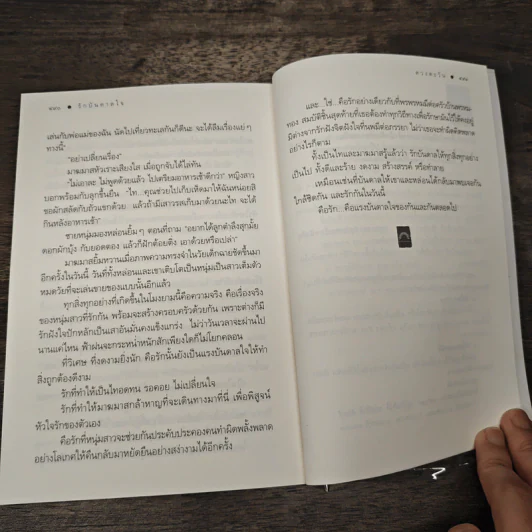 ๑๑๖ ● รักบันดาลใจ
เล่นกับพ่อแม่ของฉัน นัดไปเที่ยวทะเลกันก็ดีนะ จะได้ลืมเรื่องแย่ๆ
ทางนี้"
"อย่าเปลี่ยนเรื่อง"
มาฆมาสหัวเราะเสียงใส เมื่อถูกจับได้ไล่ทัน
"ไม่เอาละ ไม่พูดด้วยแล้ว ไปเตรียมอาหารเช้าดีกว่า" หญิงสาว
บอกพร้อมกับลุกขึ้นยืน "ไท...คุณช่วยไปเก็บเห็ดมาให้ฉันหน่อยสิ
ขอผักสลัดกับถั่วแขกด้วย แล้วถ้ามีเสาวรสเก็บมาด้วยนะไท จะได้
กินหลังอาหารเช้า"
ชายหนุ่มมองหล่อนยิ้มๆ ตอนที่ถาม "อยากได้ลูกตำลึงสุกมั้ย
ดอกผักบุ้ง กับยอดตอง แล้วก็ฝักต้อยติ่ง เอาด้วยหรือเปล่า"
มาฆมาสยิ้มหวานเมื่อภาพความทรงจำในวัยเด็กฉายชัดขึ้นมา
อีกครั้งในวันนี้ วันที่ทั้งหล่อนและเขาเติบโตเป็นหนุ่มเป็นสาวเต็มตัว
หมดวัยที่จะเล่นขายของแบบนั้นอีกแล้ว
ทุกสิ่งทุกอย่างที่เกิดขึ้นในโมงยามนี้คือความจริง คือเรื่องจริง
ของหนุ่มสาวที่รักกัน พร้อมจะสร้างครอบครัวด้วยกัน เพราะต่างก็มี
รักฝังใจปักหลักเป็นเสาอันมั่นคงแข็งแกร่ง ไม่ว่าวันเวลาจะผ่านไป
นานแค่ไหน ฟ้าฝนจะกระหน่ำหนักสักเพียงใดก็ไม่โยกคลอน
ที่วิเศษ ที่งดงามยิ่งนัก คือรักนั้นยังเป็นแรงบันดาลใจให้ทำ
สิ่งถูกต้องดีงาม
รักที่ทำให้เป็นไทอดทน รอคอย ไม่เปลี่ยนใจ
รักที่ทำให้มาฆมาสกล้าหาญที่จะเดินทางมาที่นี่ เพื่อพิสูจน์
หัวใจรักของตัวเอง
คือรักที่หนุ่มสาวจะช่วยกันประคับประคองคนทำผิดพลั้งพลาด
อย่างโลเกศให้คืนกลับมาหยัดยืนอย่างสง่างามได้อีกครั้ง
และ...ใช่...คือรักอย่างเดียวกับที่พรพรหมมีต่อครัวบ้านพรหม-
ทอง สมบัติชิ้นสุดท้ายที่เธอต้องทำทุกวิถีทางเพื่อรักษามันไว้ให้คงอยู่
มิต่างจากรักฝังจิตฝังใจที่นพมีต่อภรรยา ไม่ว่าเธอจะทำผิดคิดพลาด
อย่างไรก็ตาม
ทั้งเป็นไทและมาฆมาสรู้แล้วว่า รักบันดาลใจให้ทุกสิ่งทุกอย่าง
เป็นไป ทั้งดีและร้าย งดงาม สร้างสรรค์ หรือทำลาย
เหมือนเช่นที่บันดาลใจให้เขาและหล่อนได้กลับมาพบเจอกัน
ใกล้ชิดกัน และรักกันในวันนี้
คือรัก...คือแรงบันดาลใจของกันและกันตลอดไป